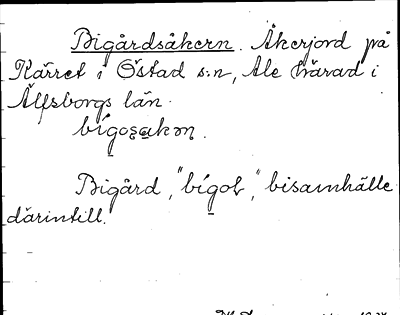 Bigårdsåkern. Åkerjord på
Kärret i Östad s:n, Ale härad i
Älfsborgs län.
bígoṣa̱kən.
Bigård, "bígoḷ", bisamhälle
därintill.